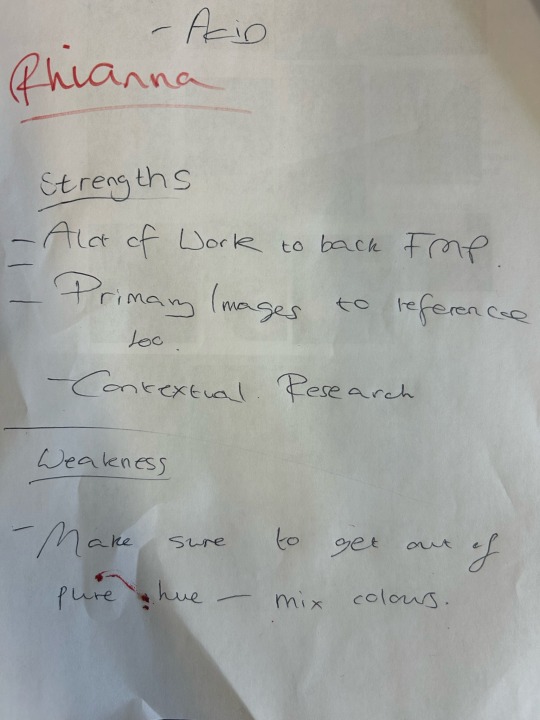 - Acid
Rhianna
Strengths
- Alot of Work to back FMP.
- Primary Images to reference
too.
- Contextual. Research
Weakness
- Make sure to get out of
pure hue - mix colours.